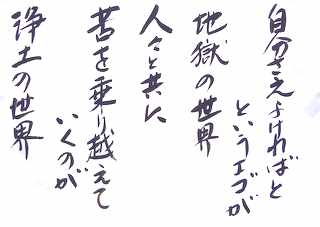 自分さえよければと
というエゴが
地獄の世界
人々と共に
苦を乗り越えて
いくのが
浄土の世界